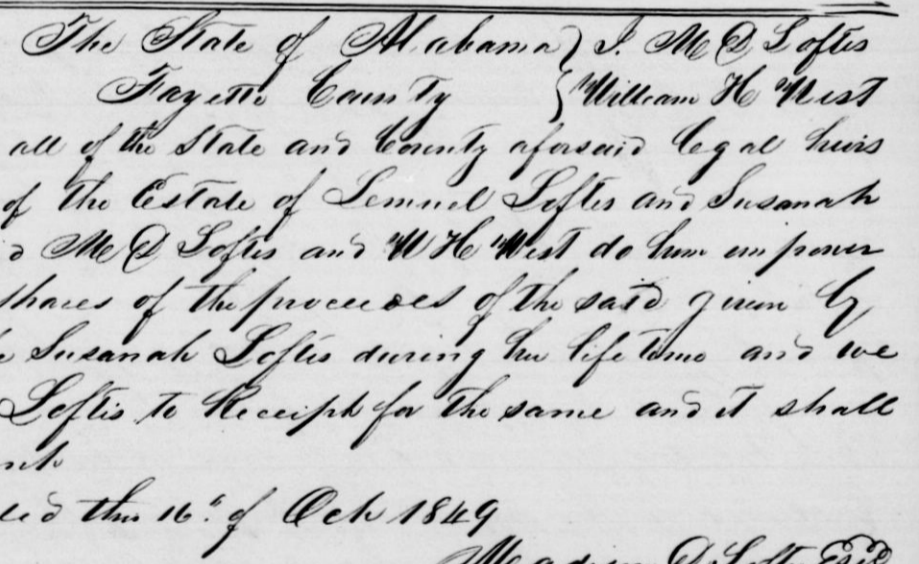 The State of Alabama } I. M D Loftis
Fayette County { William H West
all of the State and County aforesaid legal heirs
of the Estate of Lemuel Loftis and Susanah
d M D Loftis and W H West do him impower
shares of the proceedes of the said given by
Susanah Loftis during her life time and we
Loftis to Receipt for the same and it shall
this 16th of Oct 1849
D Loftis